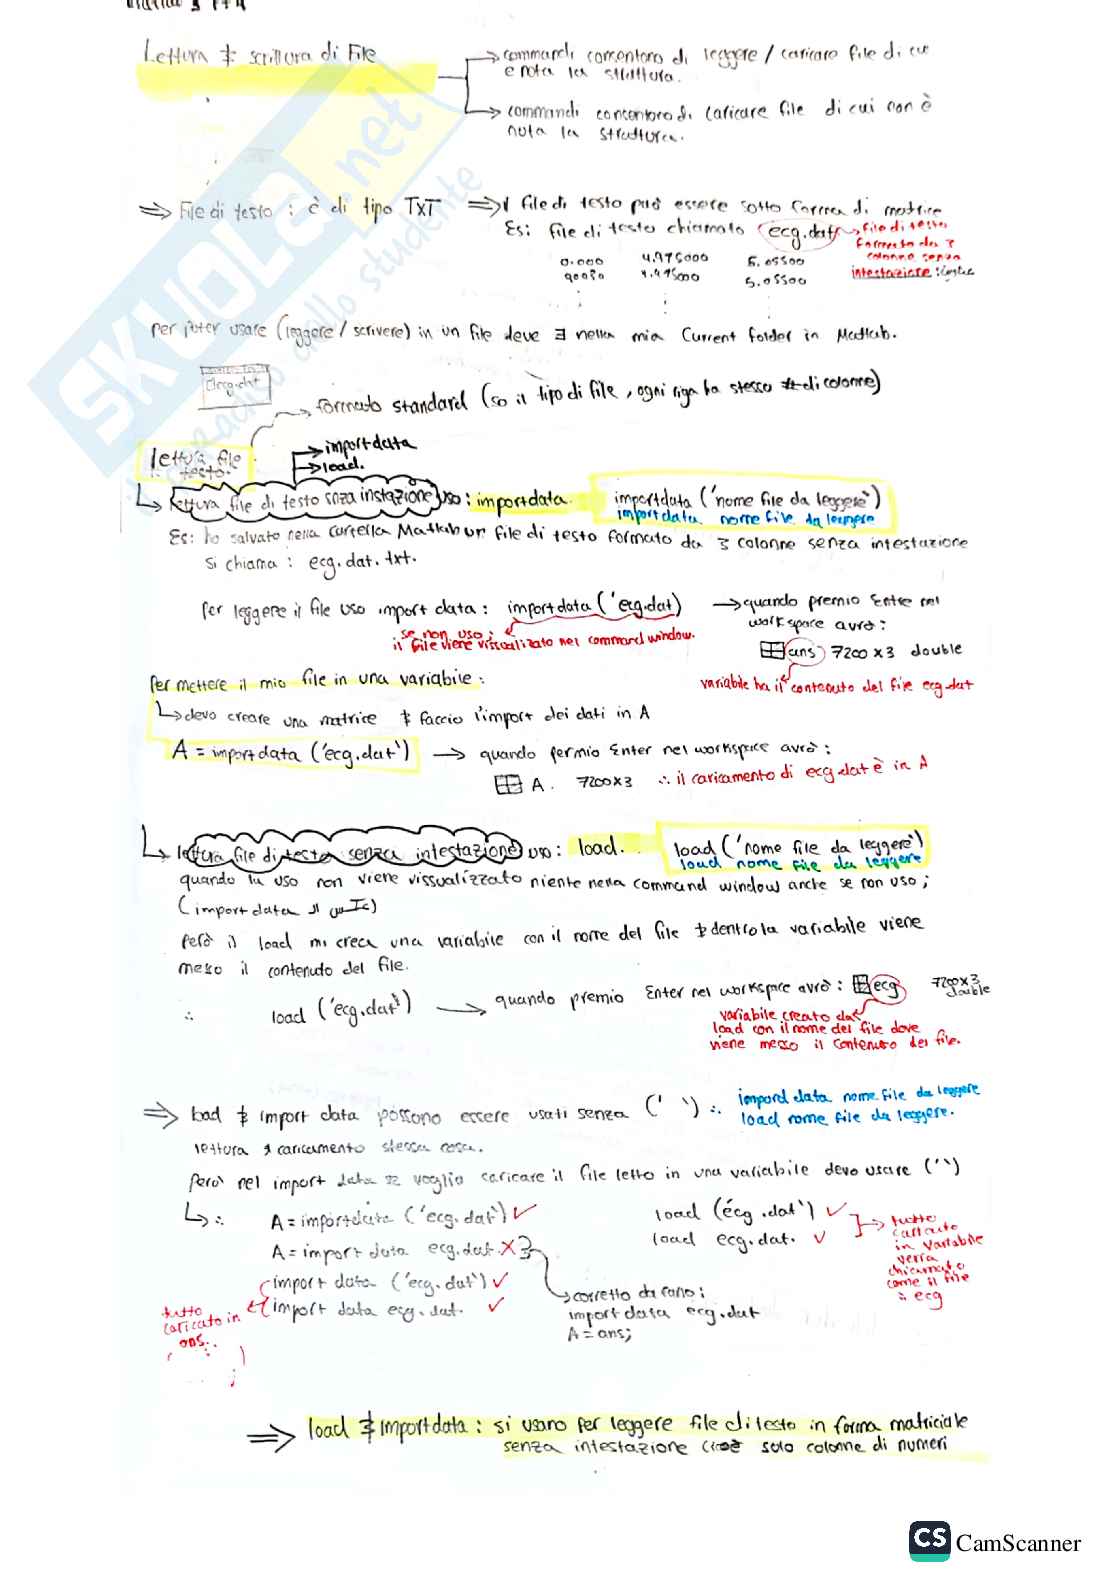 Lettura & scrittura di File
→ commandi consentono di leggere / caricare file di cui
è nota la struttura.
→ commandi consentono di caricare file di cui non è
nota la struttura.
⇒ File di testo : è di tipo TxT ⇒ il file di testo può essere sotto forma di matrice
Es: file di testo chiamato ecg.dat → file di testo
formato da 3
colonne senza
intestazione
0.000 4.975000 5.05500
4.975000 5.05500
per poter usare (leggere / scrivere) in un file deve ∃ nella mia Current folder in Matlab.
ecg.dat
formato standard (so il tipo di file, ogni riga ha stesso # di colonne)
lettura file
testo.
→ importdata
→ load.
↳ lettura file di testo senza instazione uso: importdata.
importdata ('nome file da leggere')
importdata nome file da leggere
Es: ho salvato nella cartella Matlab un file di testo formato da 3 colonne senza intestazione
si chiama : ecg.dat.txt.
per leggere il file uso import data : importdata ('ecg.dat)
se non uso ;
il file viene vissualizzato nel command window.
→ quando premio Enter nel
workspace avrò :
ans 7200 x 3 double
variabile ha il contenuto del file ecg.dat
Per mettere il mio file in una variabile :
↳ devo creare una matrice & faccio l'import dei dati in A
A = importdata ('ecg.dat') → quando permio Enter nel workspace avrò :
A. 7200x3 ∴ il caricamento di ecg.dat è in A
↳ lettura file di testo senza intestazione uso : load.
load ('nome file da leggere')
load nome file da leggere
quando lu uso non viene vissualizzato niente nella command window anche se non uso ;
Però il load mi crea una variabile con il nome del file & dentro la variabile viene
messo il contenuto del file.
∴ load ('ecg.dat') → quando premio Enter nel workspace avrò : ecg 7200x3
double
variabile creato da
load con il nome del file dove
viene messo il contenuto del file.
⇒ load & import data possono essere usati senza (' ') ∴ impord data nome file da leggere
load nome file da leggere.
lettura & caricamento stessa cosa.
Però nel import data se voglio caricare il file letto in una variabile devo usare (' ')
↳ ∴ A = importdata ('ecg.dat') ✓
A = import data ecg.dat. X
import data ('ecg.dat') ✓
import data ecg.dat. ✓
tutto
caricato in
ans.
→ corretto da fare :
importdata ecg.dat
A = ans;
load ('ecg.dat') ✓
load ecg.dat. ✓
→ tutto
caricato
in variabile
verra
chiamato
come il file
∴ ecg
⇒ load & importdata : si usano per leggere file di testo in forma matriciale
senza intestazione cioè solo colonne di numeri
SKUOLA.net
CS CamScanner